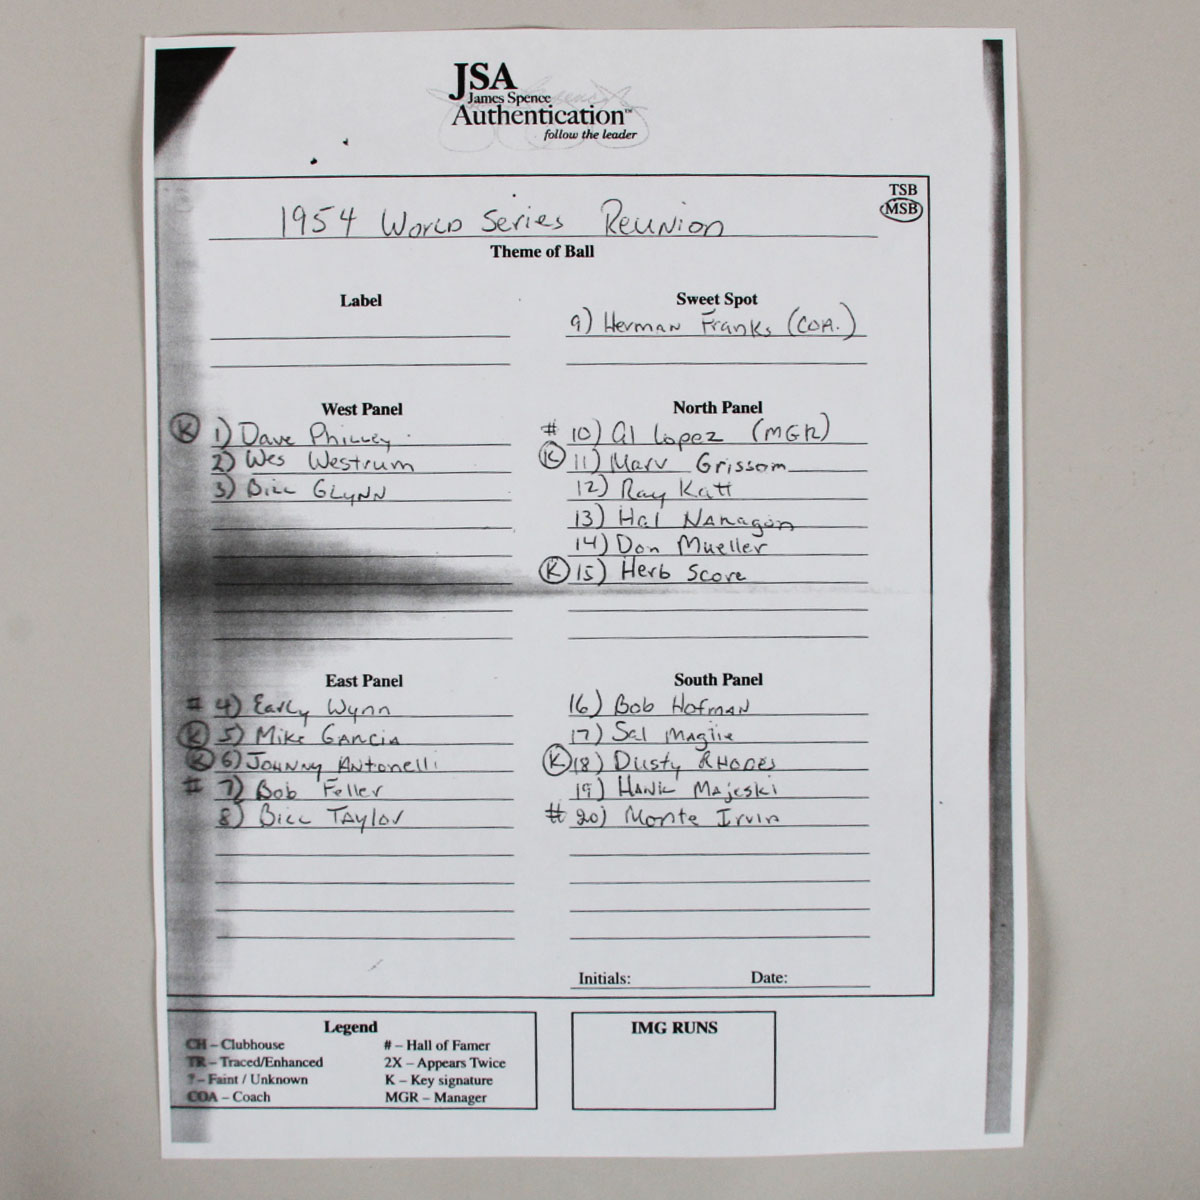 JSA
James Spence
Authentication™
follow the leader
TSB
MSB
1954 World Series Reunion
Theme of Ball
Label
Sweet Spot
9) Herman Franks (COA.)
West Panel
K 1) Dave Philley
2) Wes Westrum
3) Bill Glynn
North Panel
# 10) Al Lopez (MGR)
K 11) Marv Grissom
12) Ray Katt
13) Hal Naragon
14) Don Mueller
K 15) Herb Score
East Panel
# 4) Early Wynn
K 5) Mike Garcia
K 6) Johnny Antonelli
# 7) Bob Feller
8) Bill Taylor
South Panel
16) Bob Hofman
17) Sal Maglie
K 18) Dusty Rhodes
19) Hank Majeski
# 20) Monte Irvin
Initials: Date:
Legend
CH – Clubhouse
TR – Traced/Enhanced
? – Faint / Unknown
COA – Coach
# – Hall of Famer
2X – Appears Twice
K – Key signature
MGR – Manager
IMG RUNS